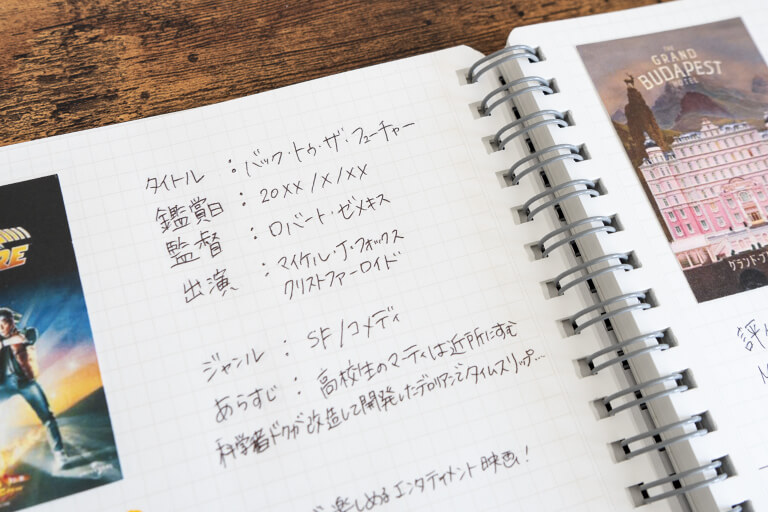 タイトル : バック・トゥ・ザ・フューチャー
鑑賞日 : 20XX/X/XX
監督 : ロバート・ゼメキス
出演 : マイケル・J・フォックス
クリストファーロイド
ジャンル : SF/コメディ
あらすじ : 高校生のマーティは近所にすむ
科学者ドクが改造して開発したデロリアンでタイムスリップ…
楽しめるエンタティメント映画!
THE
GRAND
BUDAPEST
HOTEL
グランド・ブ
評